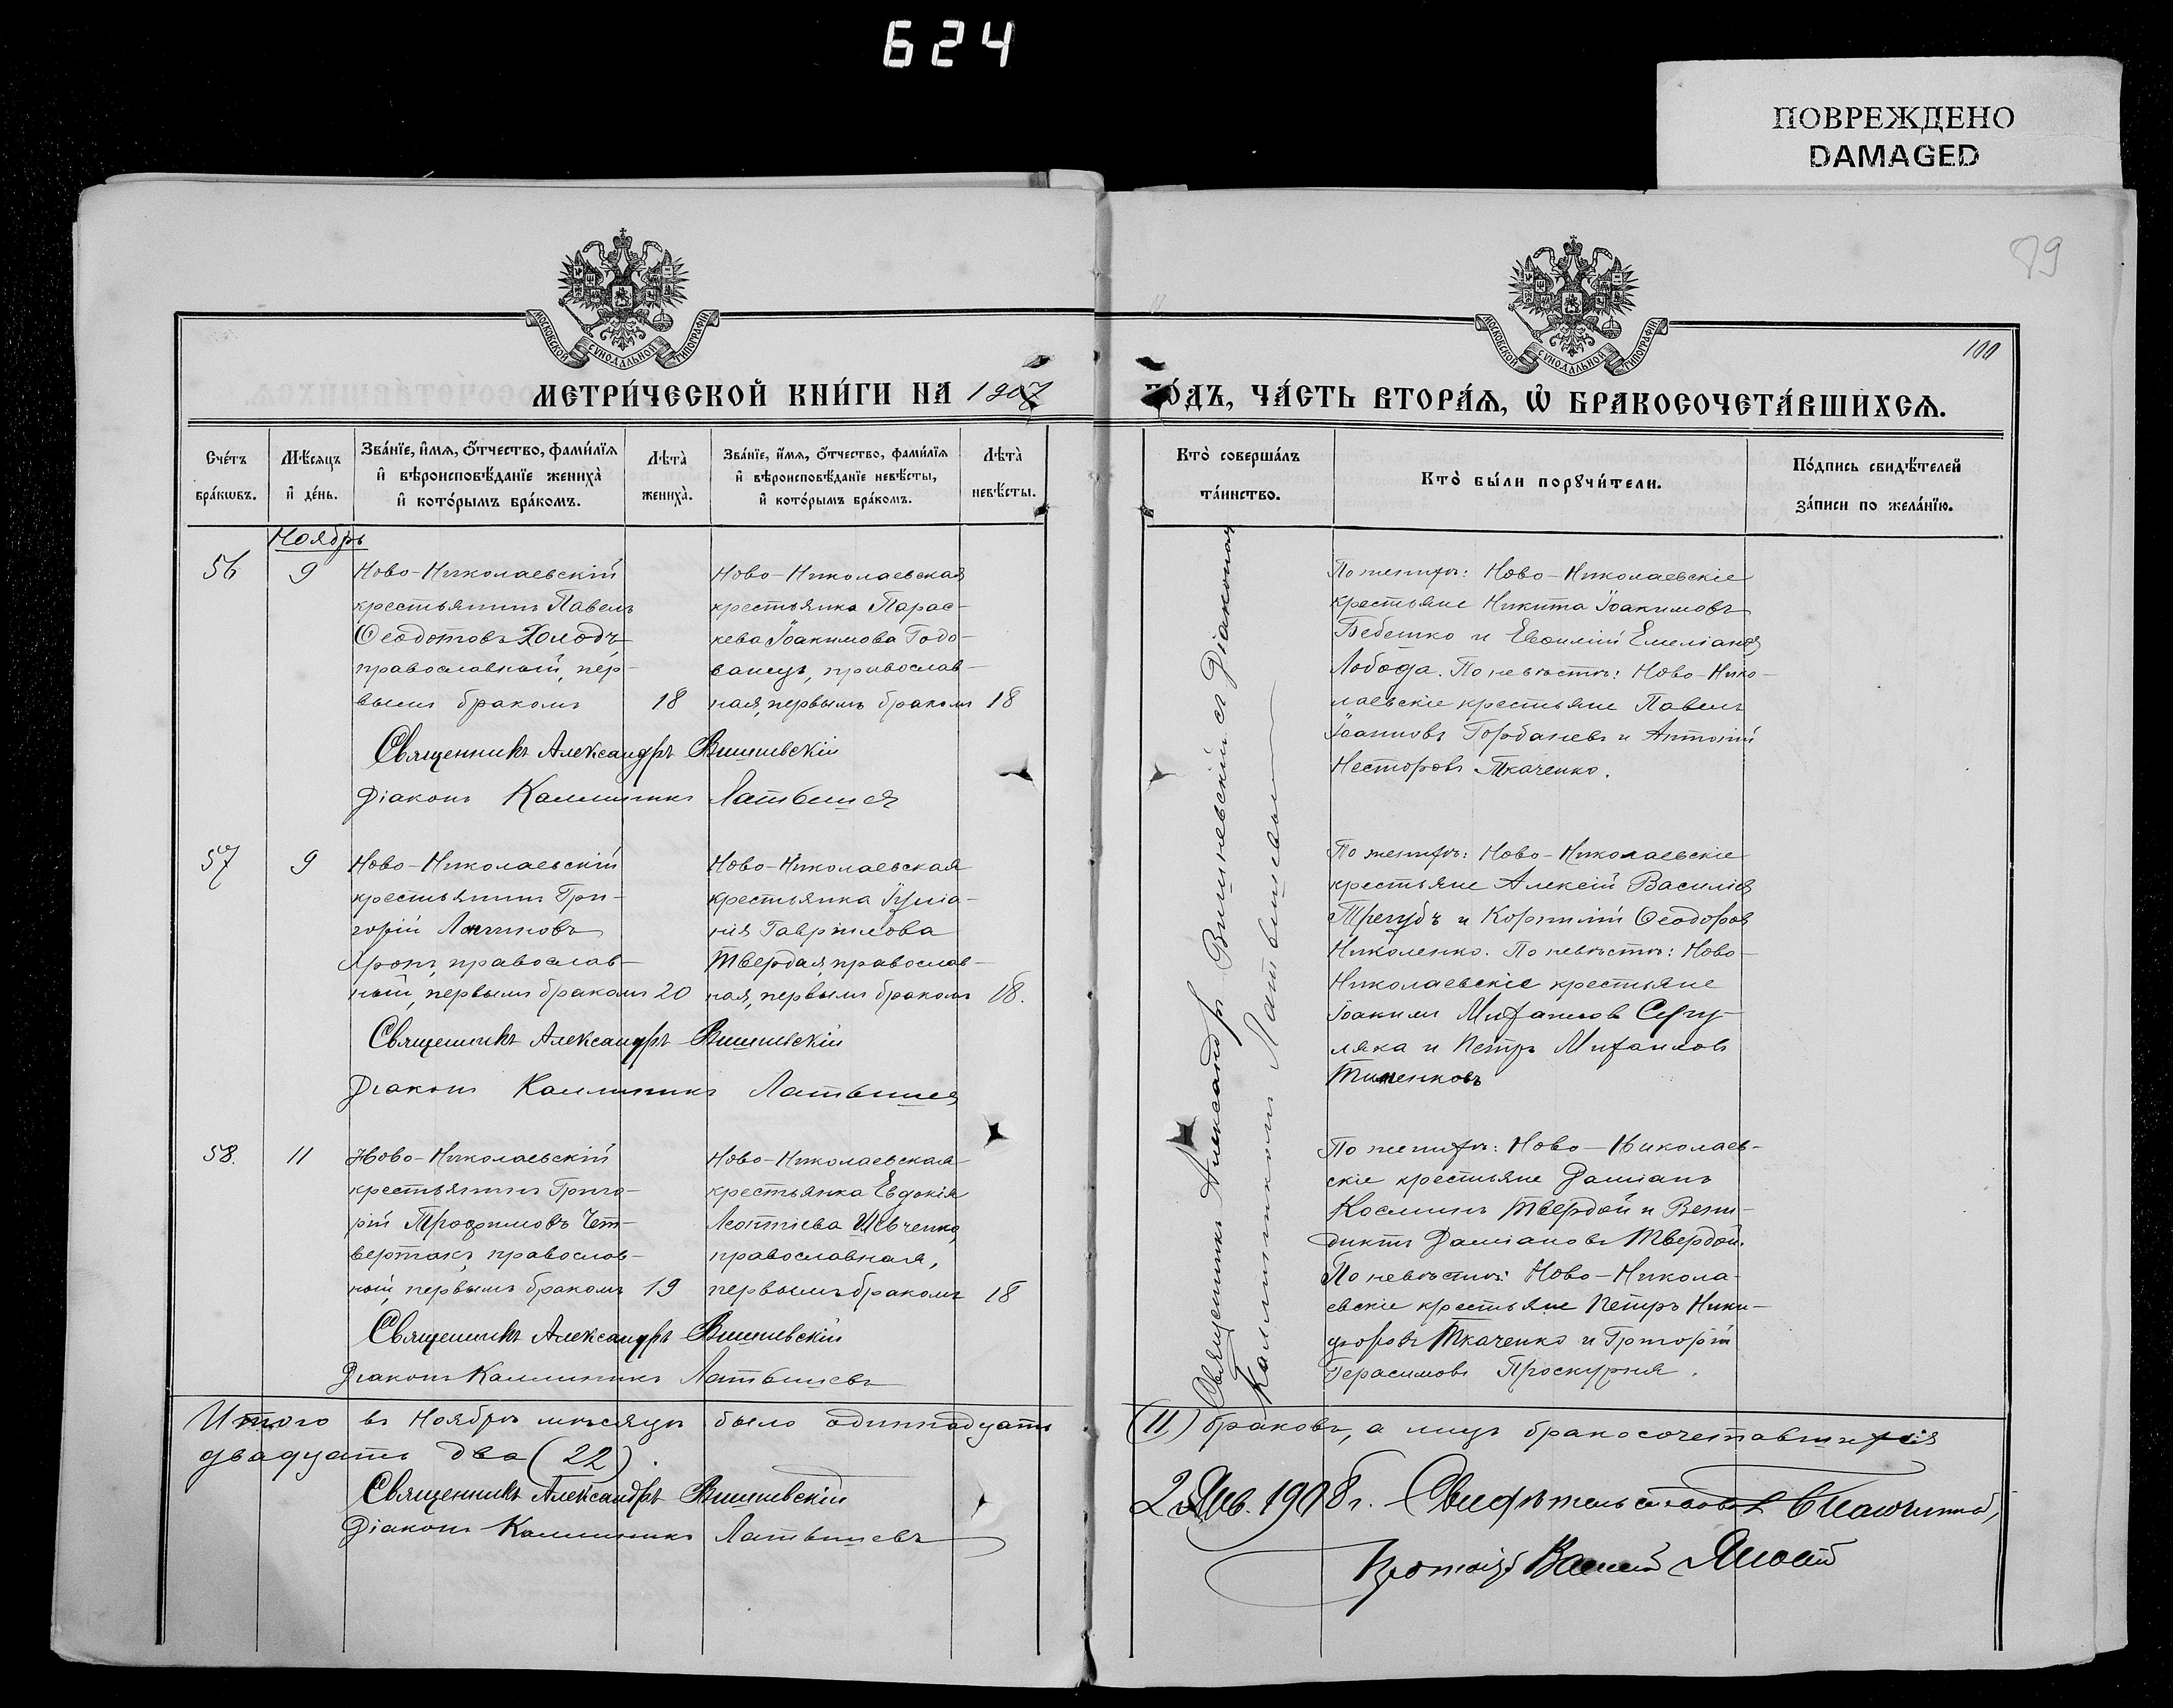 624
ПОВРЕЖДЕНО
DAMAGED
89
100
МОСКОВСКОЙ СѴНОДАЛЬНОЙ ТИПОГРАФІИ
МОСКОВСКОЙ СѴНОДАЛЬНОЙ ТИПОГРАФІИ
МЕТРИ́ЧЕСКОЙ КНИ́ГИ НА 1907
ГО́ДЪ, ЧА́СТЬ ВТОРА́Я, Ѡ БРАКОСОЧЕТА́ВШИХСЯ.
Сче́тъ бра́кѡвъ.
Мѣ́сяцъ и де́нь.
Зва́нїе, и́мя, о́тчество, фами́лїя
и вѣроисповѣ́данїе жениха̀
и кото́рымъ бра́комъ.
Лѣта̀ жениха̀.
Зва́нїе, и́мя, о́тчество, фами́лїя
и вѣроисповѣ́данїе невѣ́сты,
и кото́рымъ бра́комъ.
Лѣта̀ невѣ́сты.
Кто̀ соверша́лъ та́инство.
Кто̀ бы́ли порꙋчи́тели.
По́дпись свидѣ́телей за́писи по жела́нїю.
Ноябрь
56
9
Ново-Николаевскій
крестьянинъ Павелъ
Ѳеодотовъ Холодъ
православный, пер-
вымъ бракомъ
18
Ново-Николаевская
крестьянка Парас-
кева Іоакимова Годо-
ванецъ, православ-
ная, первымъ бракомъ
18
Священникъ Александръ Вишневскій
Діаконъ Каллиникъ Латышев
По женихѣ: Ново-Николаевскіе
крестьяне Никита Іоакимовъ
Бебешко и Евѳимій Емеліановъ
Лобода. По невѣстѣ: Ново-Нико-
лаевскіе крестьяне Павелъ
Іоанновъ Горбаневъ и Антоній
Несторовъ Ткаченко.
57
9
Ново-Николаевскій
крестьянинъ Гри-
горій Логгиновъ
Хронъ, православ-
ный, первымъ бракомъ
20
Ново-Николаевская
крестьянка Іуліа-
нія Гавріилова
Твердая, православ-
ная, первымъ бракомъ
18.
Священникъ Александръ Вишневскій
Діаконъ Каллиникъ Латышев
По женихѣ: Ново-Николаевскіе
крестьяне Алексій Василіев
Трегубъ и Корнилій Ѳеодоров
Николенко. По невѣстѣ: Ново-
Николаевскіе крестьяне
Іоакимъ Михаилов
ляка и Петръ Михаиловъ
58.
11
Ново-Николаевскій
крестьянинъ Григо-
рій Трофимовъ Чет-
вертакъ, православ-
ный, первымъ бракомъ
19
Ново-Николаевская
крестьянка Евдокія
Леонтіева Шевченко,
православная,
первымъ бракомъ
18
Священникъ Александръ Вишневскій
Діаконъ Каллиникъ Латышевъ
По женихѣ: Ново-Николаев-
скіе крестьяне Даміанъ
Косминъ Твердой и Вени-
диктъ Даміановъ Твердой.
По невѣстѣ: Ново-Никола-
евскіе крестьяне Петръ Ники-
форовъ Ткаченко и Григорій
Герасимовъ Проскурня.
Священникъ Александръ Вишневскій съ Діакономъ
Каллиникомъ Латышевымъ
Итого въ Ноябрѣ мѣсяцѣ было одиннадцать
(11) браковъ, а лицъ бракосочетавшихся
двадцать два (22).
Священникъ Александръ Вишневскій
Діаконъ Каллиникъ Латышевъ
2 Янв. 1908 г.